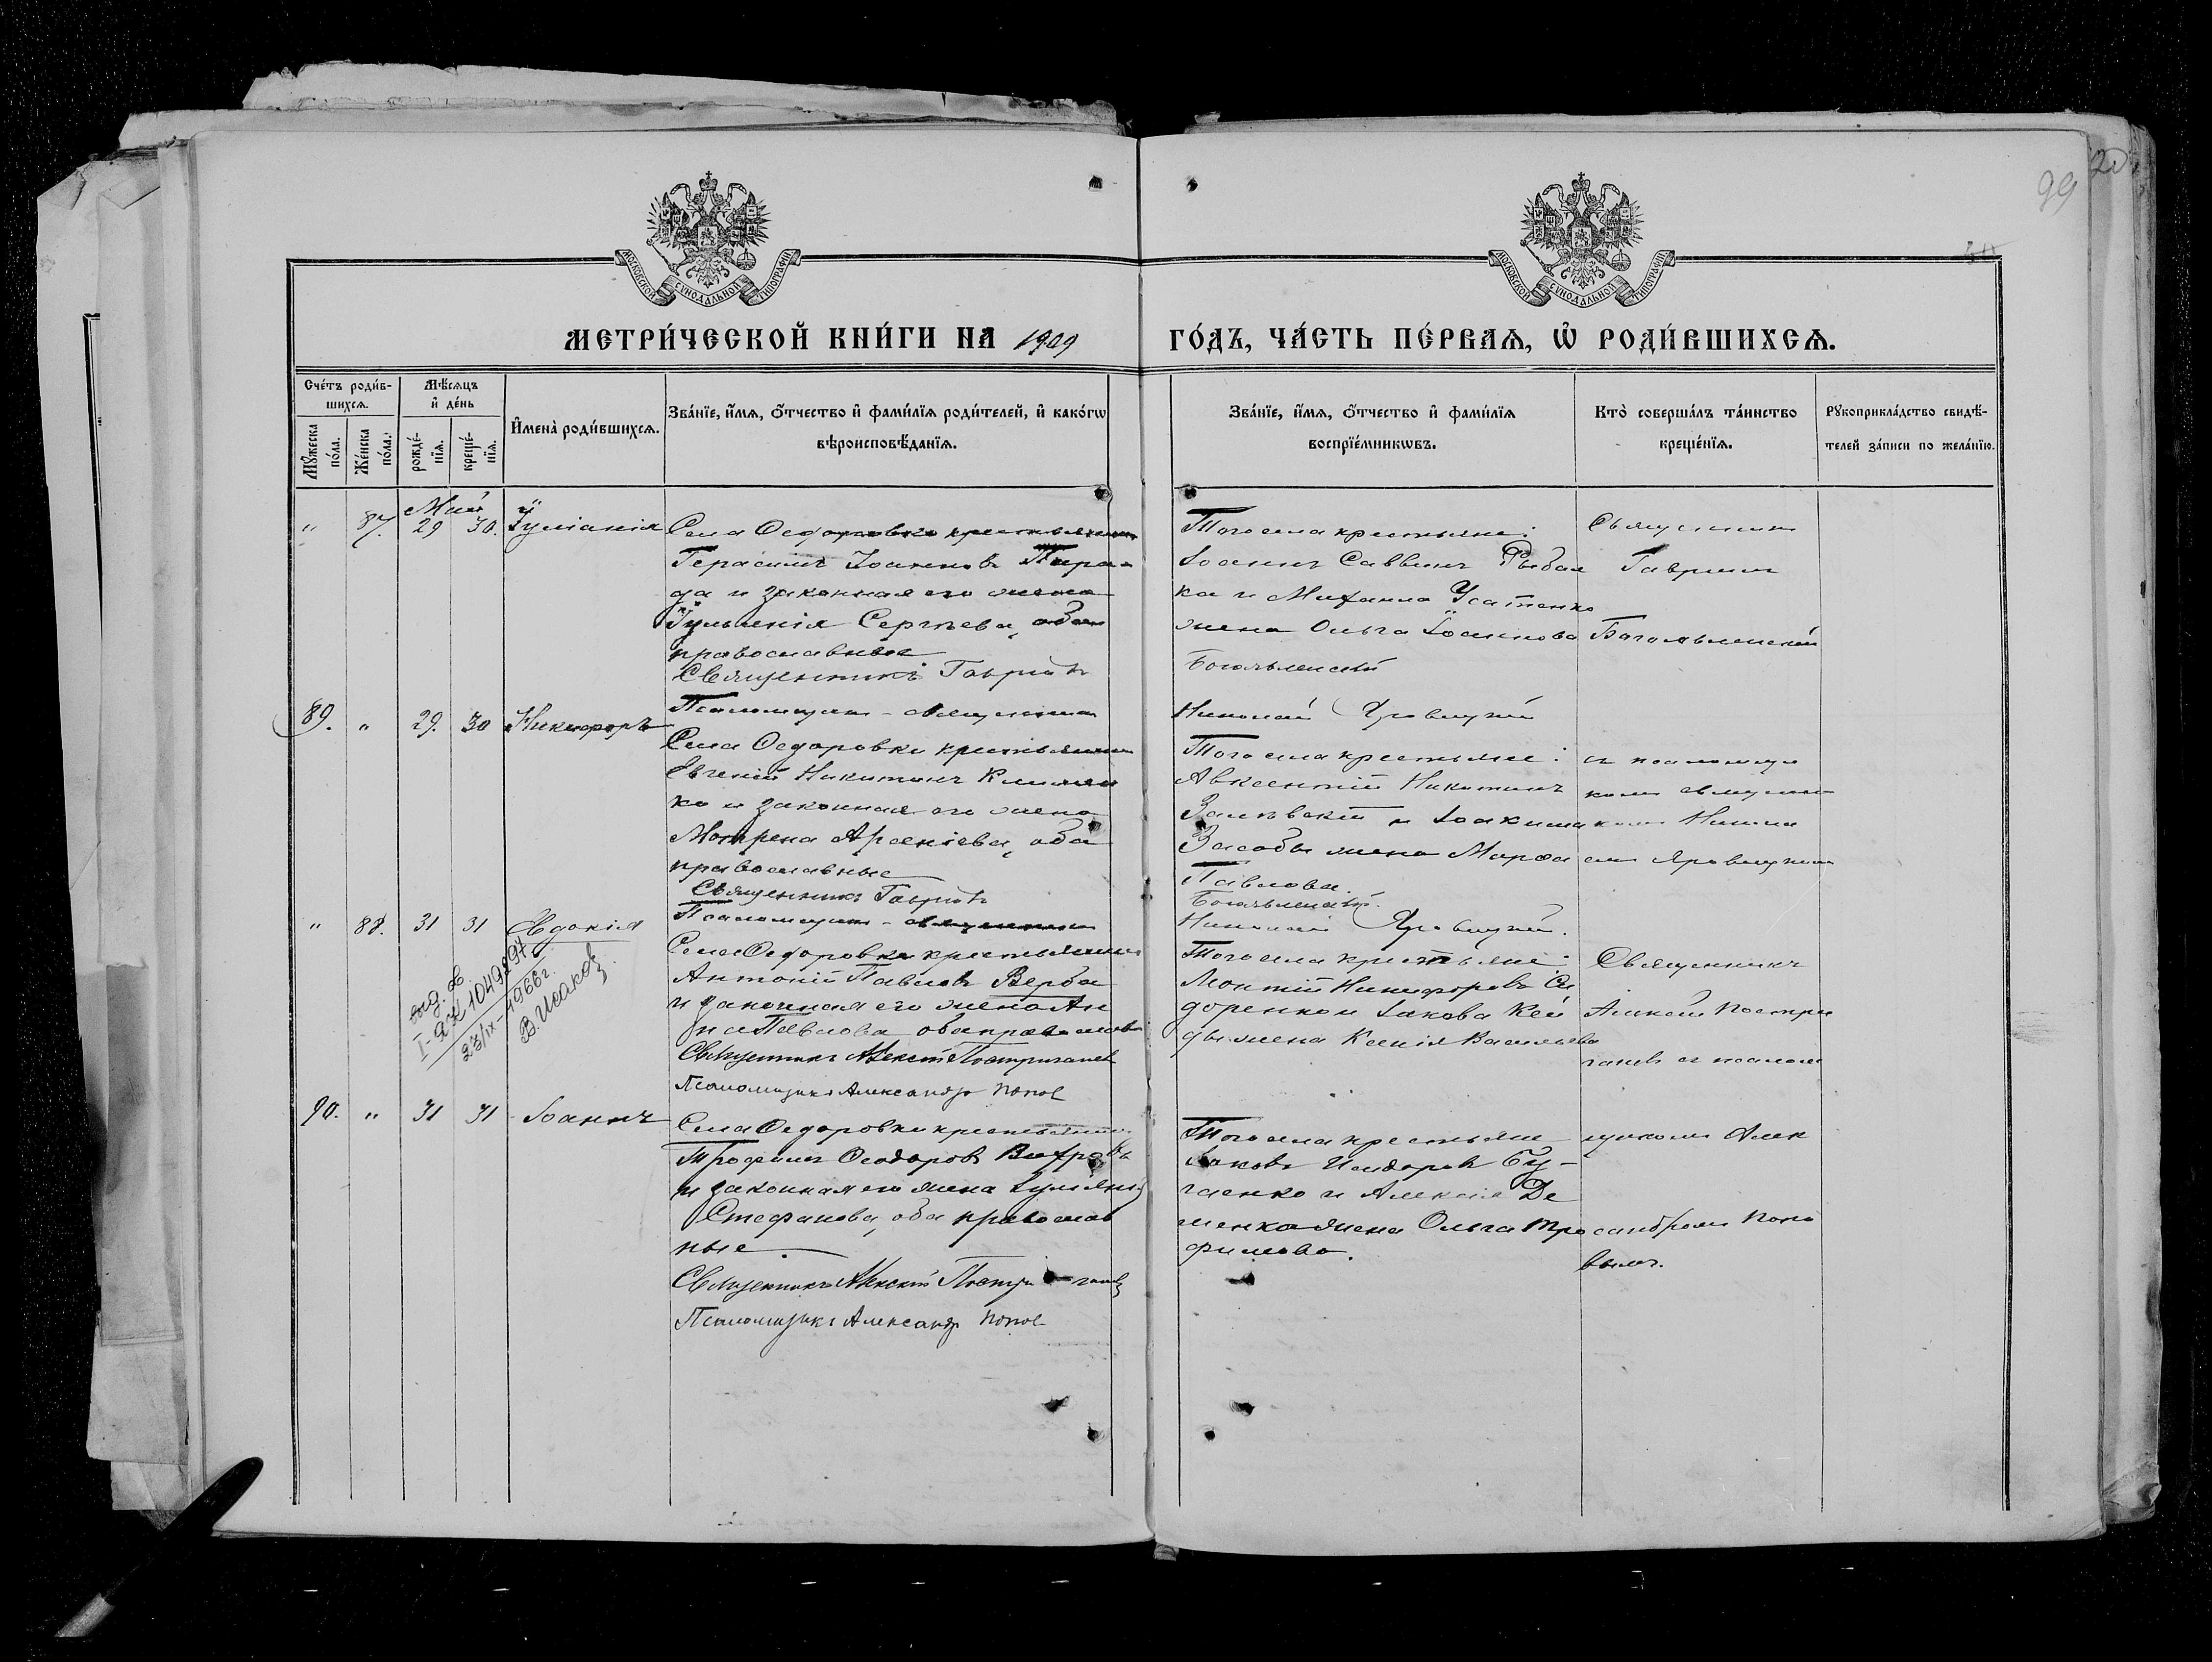 99
20
МОСКОВСКОЙ СѴНОДАЛЬНОЙ ТИПОГРАФІИ
МОСКОВСКОЙ СѴНОДАЛЬНОЙ ТИПОГРАФІИ
МЕТРИ́ЧЕСКОЙ КНИ́ГИ НА 1909
ГО́ДЪ, ЧА́СТЬ ПЕ́РВАѦ, Ѽ РОДИ́ВШИХСѦ.
Сче́тъ роди́в-
шихсѧ.
Мꙋ́жеска
по́ла.
Же́нска
по́ла.
Мѣ́сѧцъ
и҆ де́нь
рожде́-
нїѧ.
креще́-
нїѧ.
И҆мена̀ роди́вшихсѧ.
Зва́нїе, и҆́мѧ, ѻ҆́тчество и҆ фами́лїѧ роди́телей, и҆ како́гѡ
вѣроисповѣ́данїѧ.
Зва́нїе, и҆́мѧ, ѻ҆́тчество и҆ фами́лїѧ
воспрїе́мникѡвъ.
Кто̀ соверша́лъ та́инство
креще́нїѧ.
Рꙋкоприкла́дство свидѣ́-
телей за́писи по жела́нїю.
Май
" 87. 29 30. Іуліанія
Села Ѳедоровки крестьянинъ
Герасимъ Іоанновъ
да и законная его жена
Іуліанія Сергѣева, оба
православные
Священникъ Гавріилъ
Псаломщикъ - священникъ
Того села крестьяне:
Іоаннъ Саввинъ Рыбал
ка и Михаила Усатенко
жена Ольга Іоаннова
Богоявленскій
Николай Яровицкій
Священникъ
Гавріилъ
Богоявленскій
89. " 29. 30 Никифоръ
Села Ѳедоровки крестьянинъ
Евгеній Никитинъ Клименко
ко и законная его жена
Мотрена Арсеніева, оба
православные
Священникъ Гавріилъ
Псаломщикъ - священникъ
Того села крестьяне:
Авксентій Никитинъ
и Іоакима
жена Марѳа
Павлова.
Богоявленскій.
Николай Яровицкій.
съ псаломщи
комъ священни
комъ Никола
емъ Яровицкимъ
" 88. 31 31 Евдокія
выд.
I-ЯК 1049297
23/IX-1966г.
В. Исаков
Села Ѳедоровки крестьянинъ
Антоній Павловъ Верба
и законная его жена Ан
на Павлова оба православ
Священникъ Алексій Постригачев
Псаломщикъ Александръ Попов
Того села крестьяне:
Леонтій Никифоровъ Си
доренко и Іакова Кей
ды жена Ксенія Васильева
Священникъ
Алексій Постри
гачевъ съ псалом
90. " 31 31 Іоаннъ
Села Ѳедоровки крестьянинъ
Трофимъ Ѳеодоровъ
и законная его жена Іуліанія
Стефанова, оба православ
ные.
Священникъ Алексій Постригачев
Псаломщикъ Александръ Попов
Того села крестьяне
Іаковъ Исидоровъ Бу-
гаенко и Алексія Де
менка жена Ольга Тро
фимова.
щикомъ Алек
сандромъ Попо
вымъ.